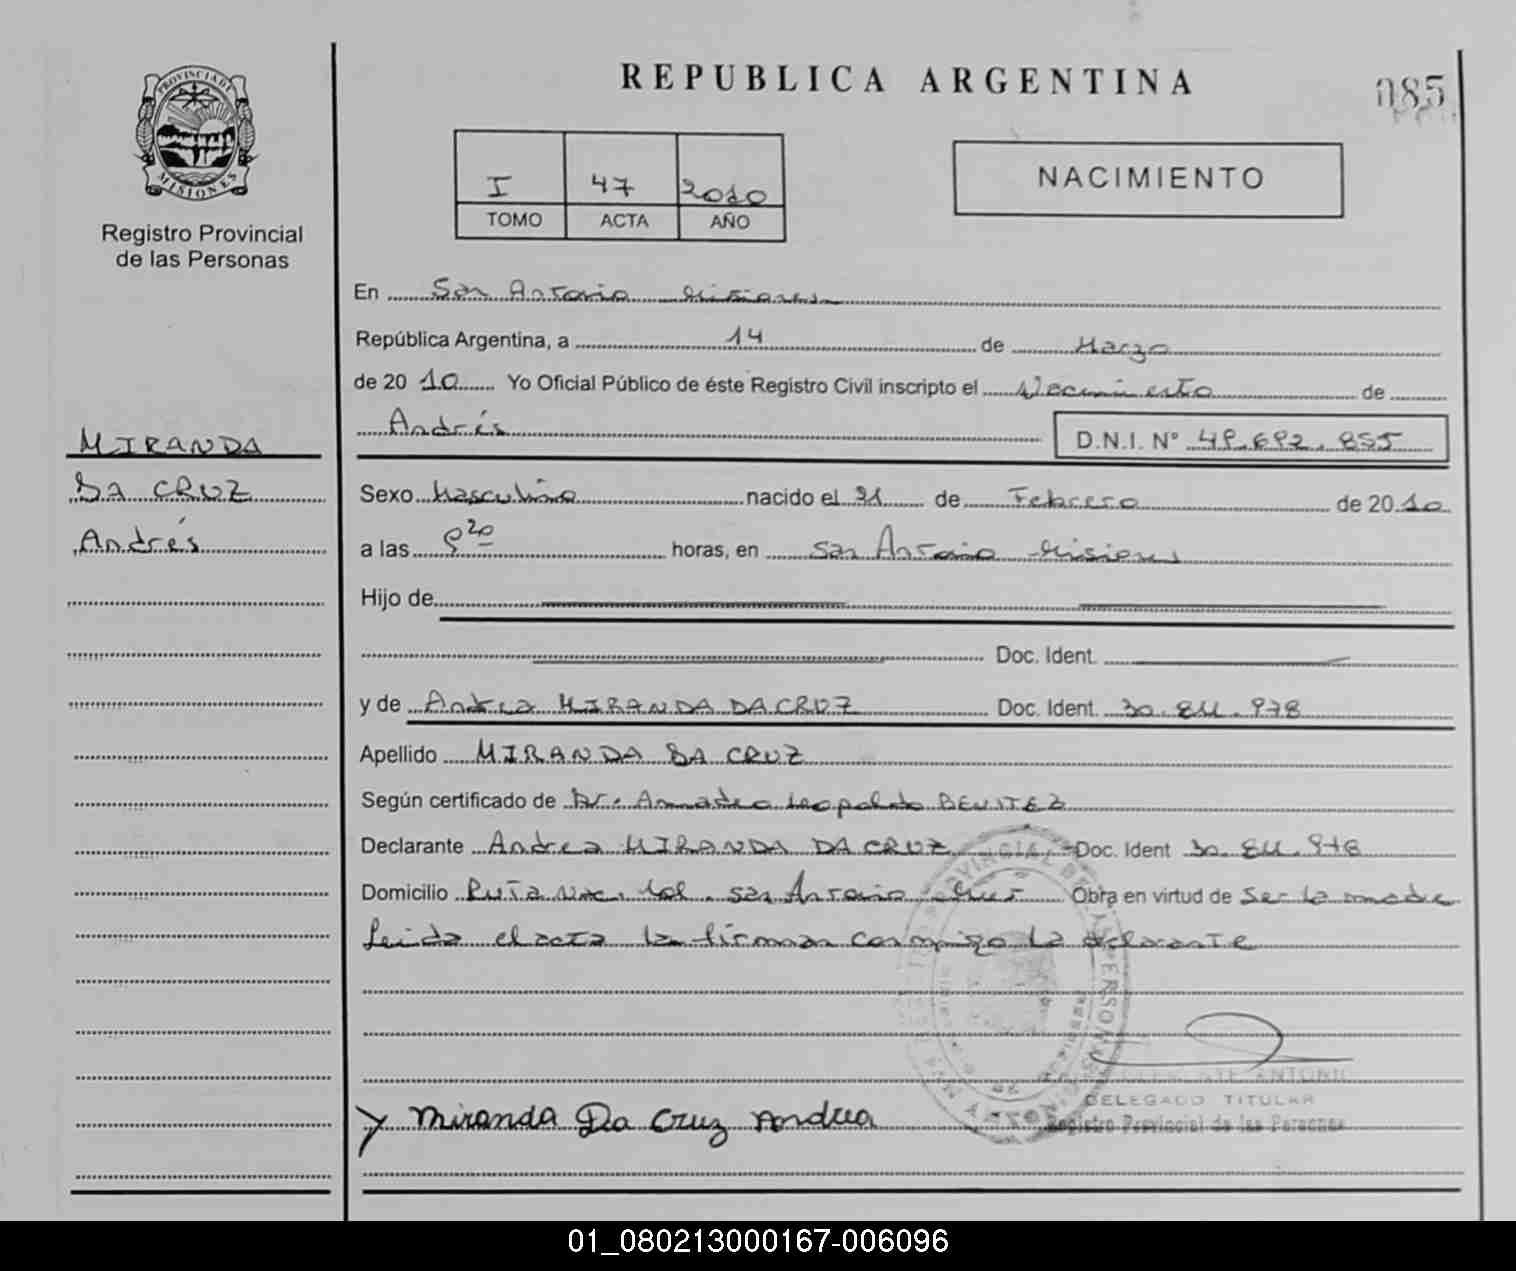 REPUBLICA ARGENTINA
085
PROVINCIA DE MISIONES
Registro Provincial
de las Personas
I 47 2010
TOMO ACTA AÑO
NACIMIENTO
En San Antonio Misiones
República Argentina, a 14 de Marzo
de 20 10 Yo Oficial Público de éste Registro Civil inscripto el Nacimiento de
Andrés D.N.I. Nº 49.692.855
MIRANDA
DA CRUZ
Andrés
Sexo Masculino nacido el 21 de Febrero de 20 10
a las horas, en San Antonio Misiones
Hijo de
Doc. Ident.
y de Andrea MIRANDA DA CRUZ Doc. Ident. 30.811.978
Apellido MIRANDA DA CRUZ
Según certificado de Dr. Amadeo Leopoldo BENITEZ
Declarante Andrea MIRANDA DA CRUZ Doc. Ident 30.811.978
Domicilio Ruta Nac. 101. San Antonio Mnes Obra en virtud de Ser la madre
Leida el acta la firman conmigo la declarante
ANTONIO
DELEGADO TITULAR
Registro Provincial de las Personas
Miranda Da Cruz Andrea
01_080213000167-006096